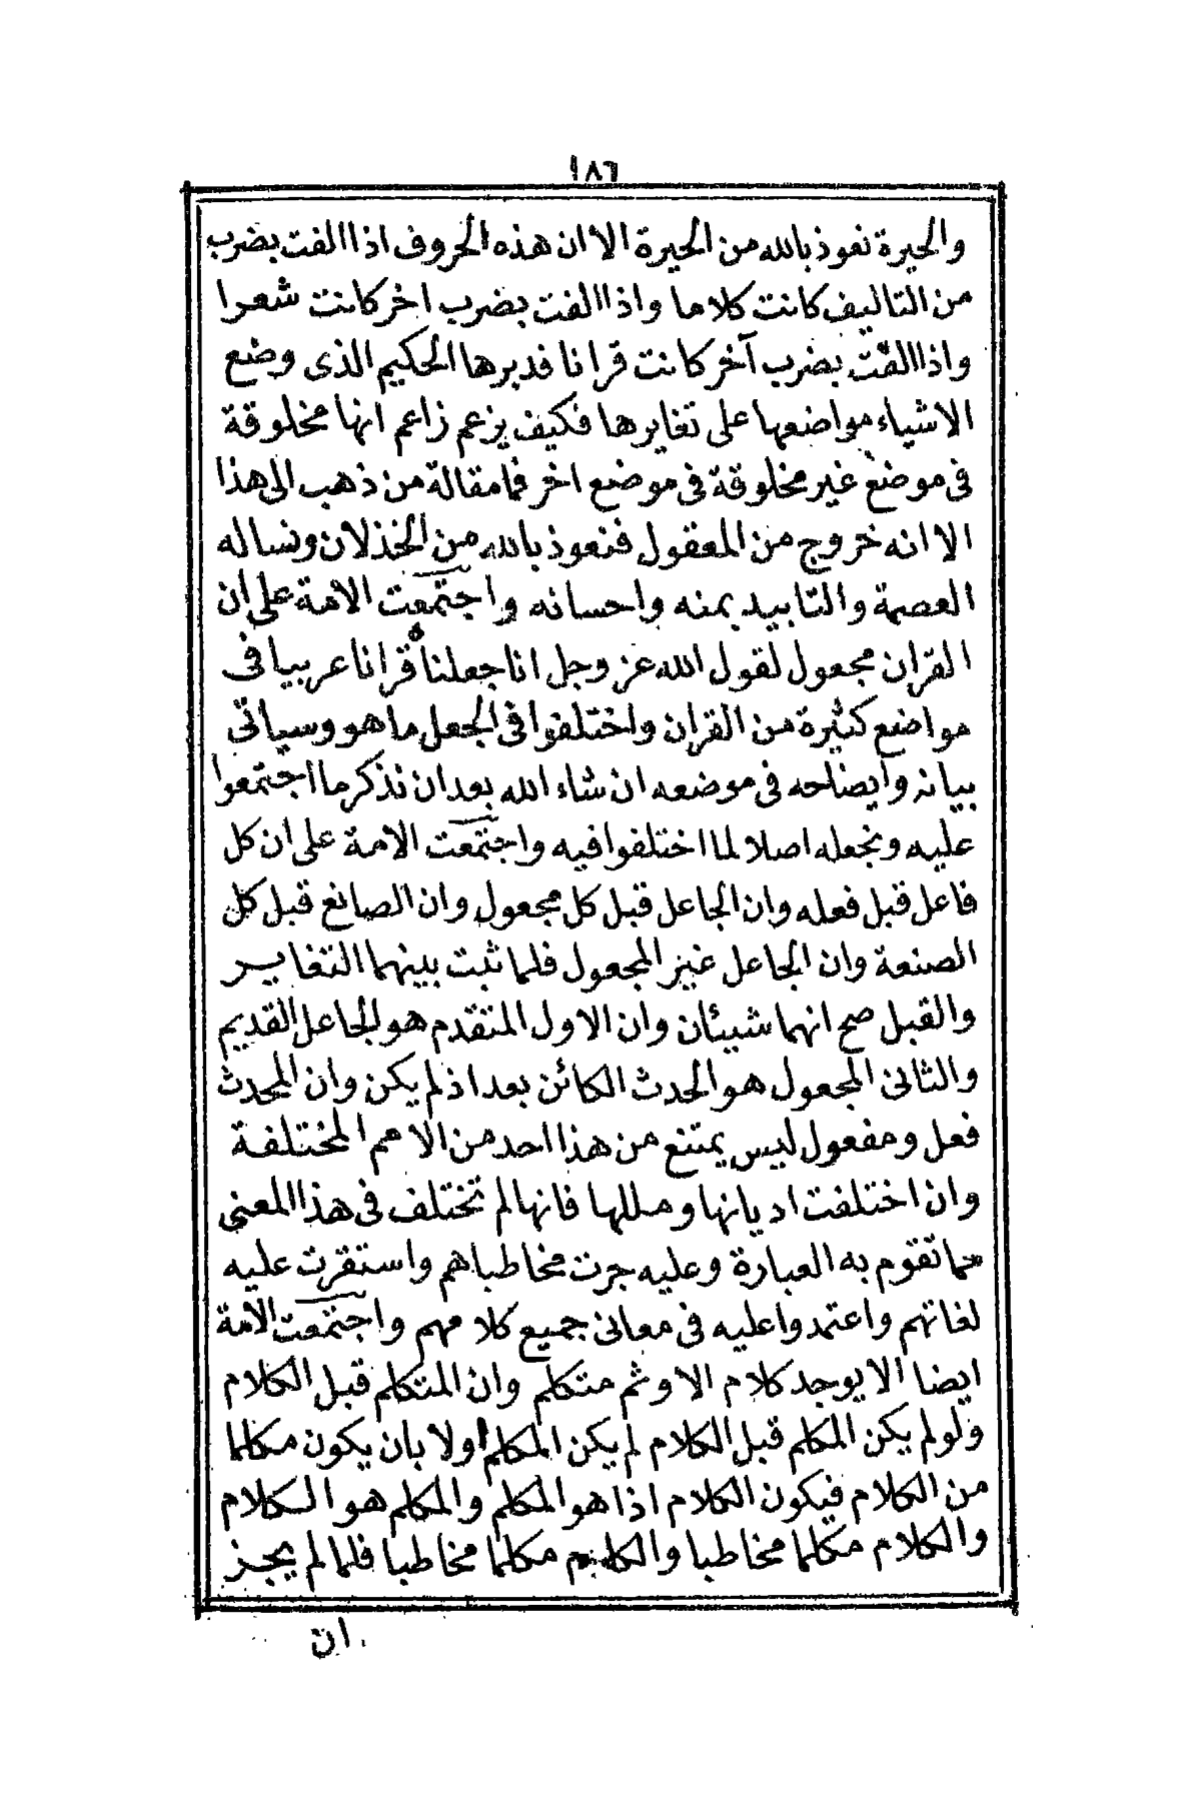 ١٨٦
والحيرة نعوذ بالله من الحيرة الا ان هذه الحروف اذا الفت بضرب
من التاليف كانت كلاما واذا الفت بضرب اخر كانت شعرا
واذا الفت بضرب آخر كانت قرانا فدبرها الحكيم الذى وضع
الاشياء مواضعها على تغايرها فكيف يزعم زاعم انها مخلوقة
فى موضع غير مخلوقة فى موضع اخر فما مقالة من ذهب الى هذا
الا انه خروج من المعقول فنعوذ بالله من الخذلان ونساله
العصمة والتاييد بمنه واحسانه واجتمعت الامة على ان
القران مجعول لقول الله عز وجل انا جعلناه قرانا عربيا فى
مواضع كثيرة من القران واختلفوا فى الجعل ما هو وسياتى
بيانه وايضاحه فى موضعه ان شاء الله بعد ان نذكر ما اجتمعوا
عليه ونجعله اصلا لما اختلفوا فيه واجتمعت الامة على ان كل
فاعل قبل فعله وان الجاعل قبل كل مجعول وان الصانع قبل كل
الصنعة وان الجاعل غير المجعول فلما ثبت بينهما التغاير
والقبل صح انهما شيئان وان الاول المتقدم هو الجاعل القديم
والثانى المجعول هو الحدث الكائن بعد اذ لم يكن وان المحدث
فعل ومفعول ليس يمتنع من هذا احد من الامم المختلفة
وان اختلفت اديانها ومللها فانها لم تختلف فى هذا المعنى
مما تقوم به العبارة وعليه جرت مخاطباهم واستقرت عليه
لغاتهم واعتمدوا عليه فى معانى جميع كلامهم واجتمعت الامة
ايضا الا يوجد كلام الا وثم متكلم وان المتكلم قبل الكلام
ولو لم يكن المكلم قبل الكلام لم يكن المكلم اولا بان يكون مكلما
من الكلام فيكون الكلام اذا هو المكلم والمكلم هو الكلام
والكلام مكلما مخاطبا والكلام مكلما مخاطبا فلما لم يجز
ان